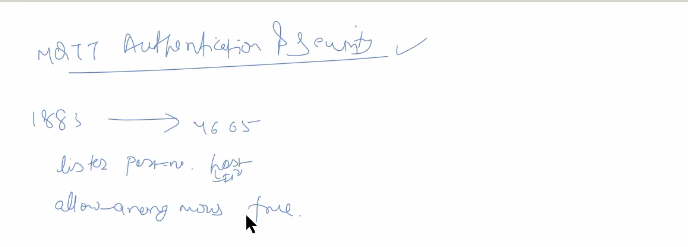 MQTT Authentication & Security
1883 → 4665
listen port-no. host
allow-anony mous true.